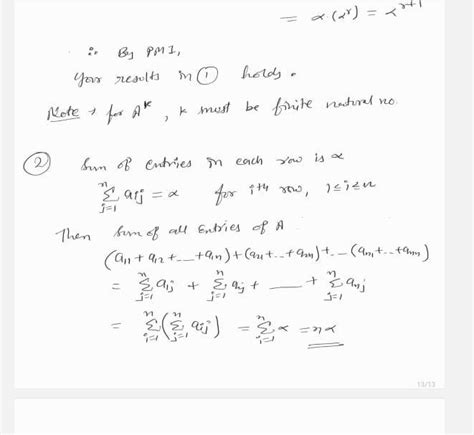 = α·(α^r) = α^{r+1}
∴ By PMI,
Your results in ① holds.
Note → for A^k, k must be finite natural no.
② Sum of entries in each row is α
∑_{j=1}^{n} a_{ij} = α for i^{th} row, 1≤i≤n
Then Sum of all Entries of A
(a_{11} + a_{12} + --- + a_{1n}) + (a_{21} + .. + a_{2n}) + .. - (a_{n1} + .. + a_{nn})
= ∑_{j=1}^{n} a_{1j} + ∑_{j=1}^{n} a_{2j} + --- + ∑_{j=1}^{n} a_{nj}
= ∑_{i=1}^{n} (∑_{j=1}^{n} a_{ij}) = ∑_{i=1}^{n} α = nα
13/13